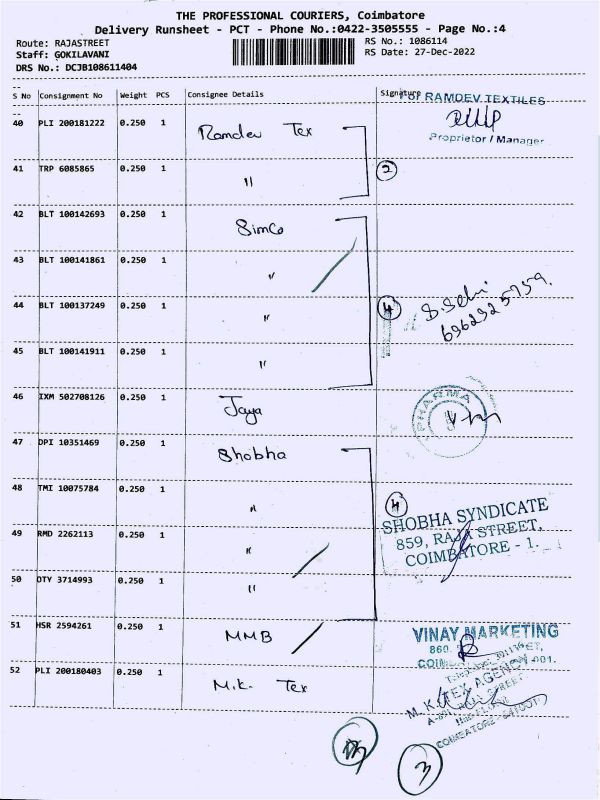 THE PROFESSIONAL COURIERS, Coimbatore
Delivery Runsheet - PCT - Phone No.:0422-3505555 - Page No.:4
Route: RAJASTREET
Staff: GOKILAVANI
DRS No.: DCJB108611404
RS No.: 1086114
RS Date: 27-Dec-2022
S No Consignment No Weight PCS Consignee Details Signature
For RAMDEV TEXTILES
40 PLI 200181222 0.250 1 Ramdev Tex
Proprietor / Manager
41 TRP 6085865 0.250 1 " 2
42 BLT 100142693 0.250 1 Simco
43 BLT 100141861 0.250 1 "
44 BLT 100137249 0.250 1 " 4
S.Selvi
45 BLT 100141911 0.250 1 "
46 IXM 502708126 0.250 1 Jaya
PHARMA
47 DPI 10351469 0.250 1 Shobha
48 TMI 10075784 0.250 1 " 4
SHOBHA SYNDICATE
859, RAJA STREET,
COIMBATORE - 1.
49 RMD 2262113 0.250 1 "
50 OTY 3714993 0.250 1 "
51 HSR 2594261 0.250 1 MMB
VINAY MARKETING
860,
52 PLI 200180403 0.250 1 M.K. Tex
M. K. TEX AGENCY
COIMBATORE - 641001
3